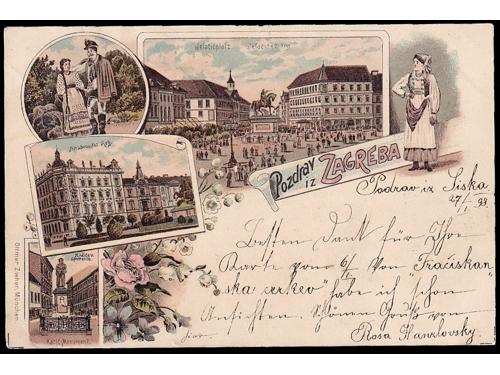 Jelačićplatz Jelačićev trg
Pozdrav
iz ZAGREBA
Pozdrav iz Siska
27/1. 98.
Kačićev
spomenik
Kačić-Monument.
Ottmar Zieher, München
Besten Dank für Ihre
Karte vom 6/1. von "Fračiskan-
ska cerkev" habe ich schon
Ansichten. Schönen Gruss von
Rosa Hanzlovsky.